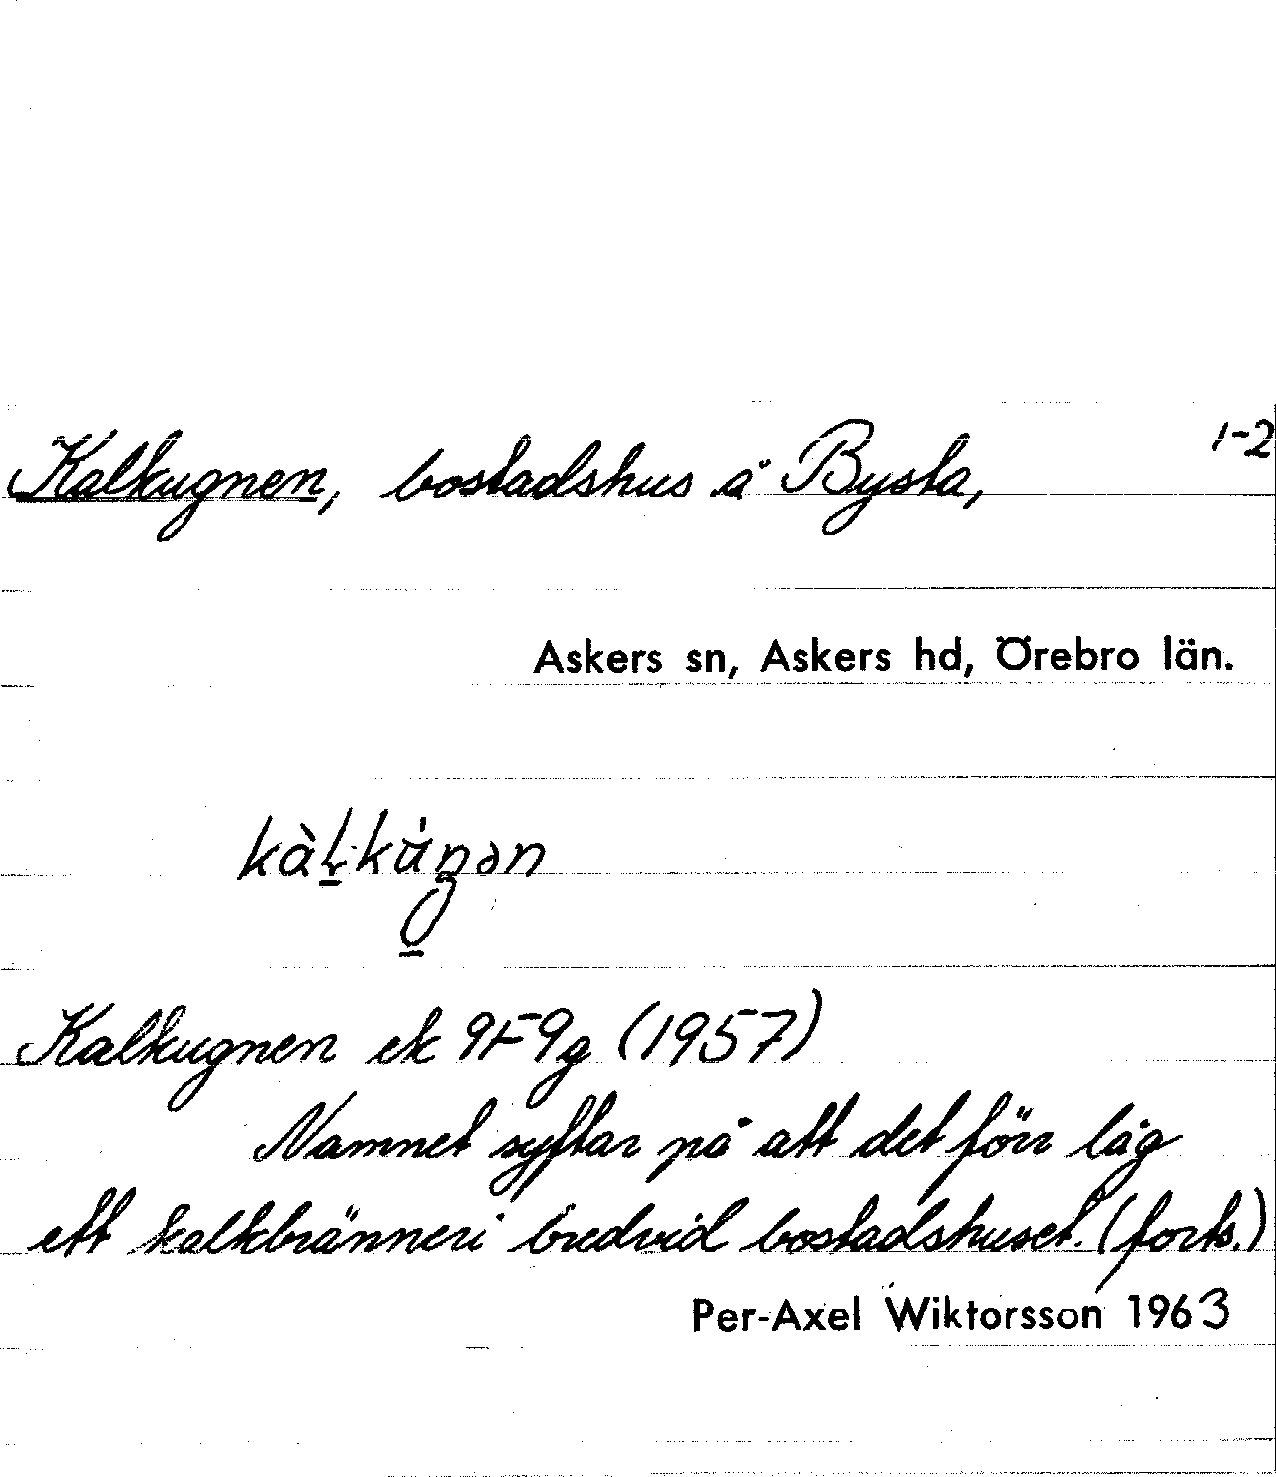 1-2
Kalkugnen, bostadshus å Bysta,
Askers sn, Askers hd, Örebro län.
Kalkugnen ek 9F9g (1957)
Namnet syftar på att det förr låg
ett kalkbränneri bredvid bostadshuset. (forts.)
Per-Axel Wiktorsson 1963